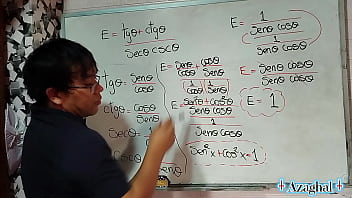 E = tgθ + ctgθ
Secθ cscθ
tgθ = Senθ
Cosθ
ctgθ = Cosθ
Senθ
Secθ = 1
E = Senθ + Cosθ
Cosθ Senθ
1 1
Cosθ Senθ
E = Sen²θ + cos²θ
Senθ Cosθ
1
Senθ Cosθ
Sen²x + Cos²x = 1
E = 1
Senθ Cosθ
1
Senθ Cosθ
E = Senθ Cosθ
Senθ Cosθ
E = 1
Azaghal